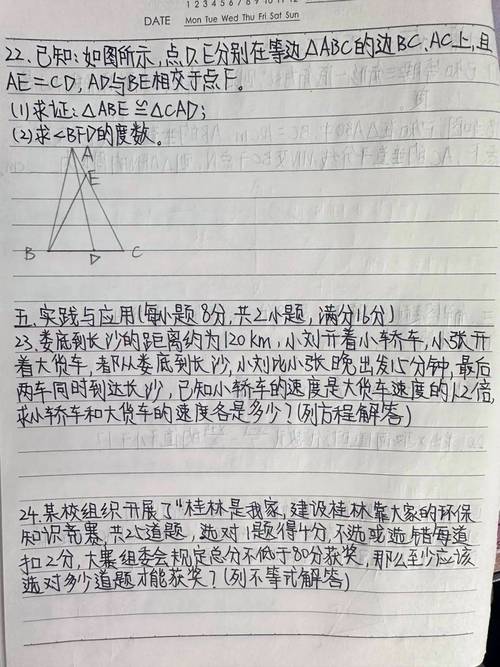 1 2 3 4 5 6 7 8 9 10 11 12
DATE Mon Tue Wed Thu Fri Sat Sun
22.已知:如图所示,点D.E分别在等边△ABC的边BC,AC上,且
AE=CD,AD与BE相交于点F。
(1)求证:△ABE≌△CAD;
(2)求∠BFD的度数。
A
E
B D C
五.实践与应用(每小题8分,共2小题,满分16分)
23.娄底到长沙的距离约为120km,小刘开着小轿车,小张开
着大货车,都从娄底到长沙,小刘比小张晚出发15分钟,最后
两车同时到达长沙,已知小轿车的速度是大货车速度的1.2倍,
求小轿车和大货车的速度各是多少?(列方程解答)
24.某校组织开展了“桂林是我家,建设桂林靠大家的环保
知识竞赛,共25道题,选对1题得4分,不选或选错每道
扣2分,大赛组委会规定总分不低于80分获奖,那么至少应该
选对多少道题才能获奖?(列不等式解答)